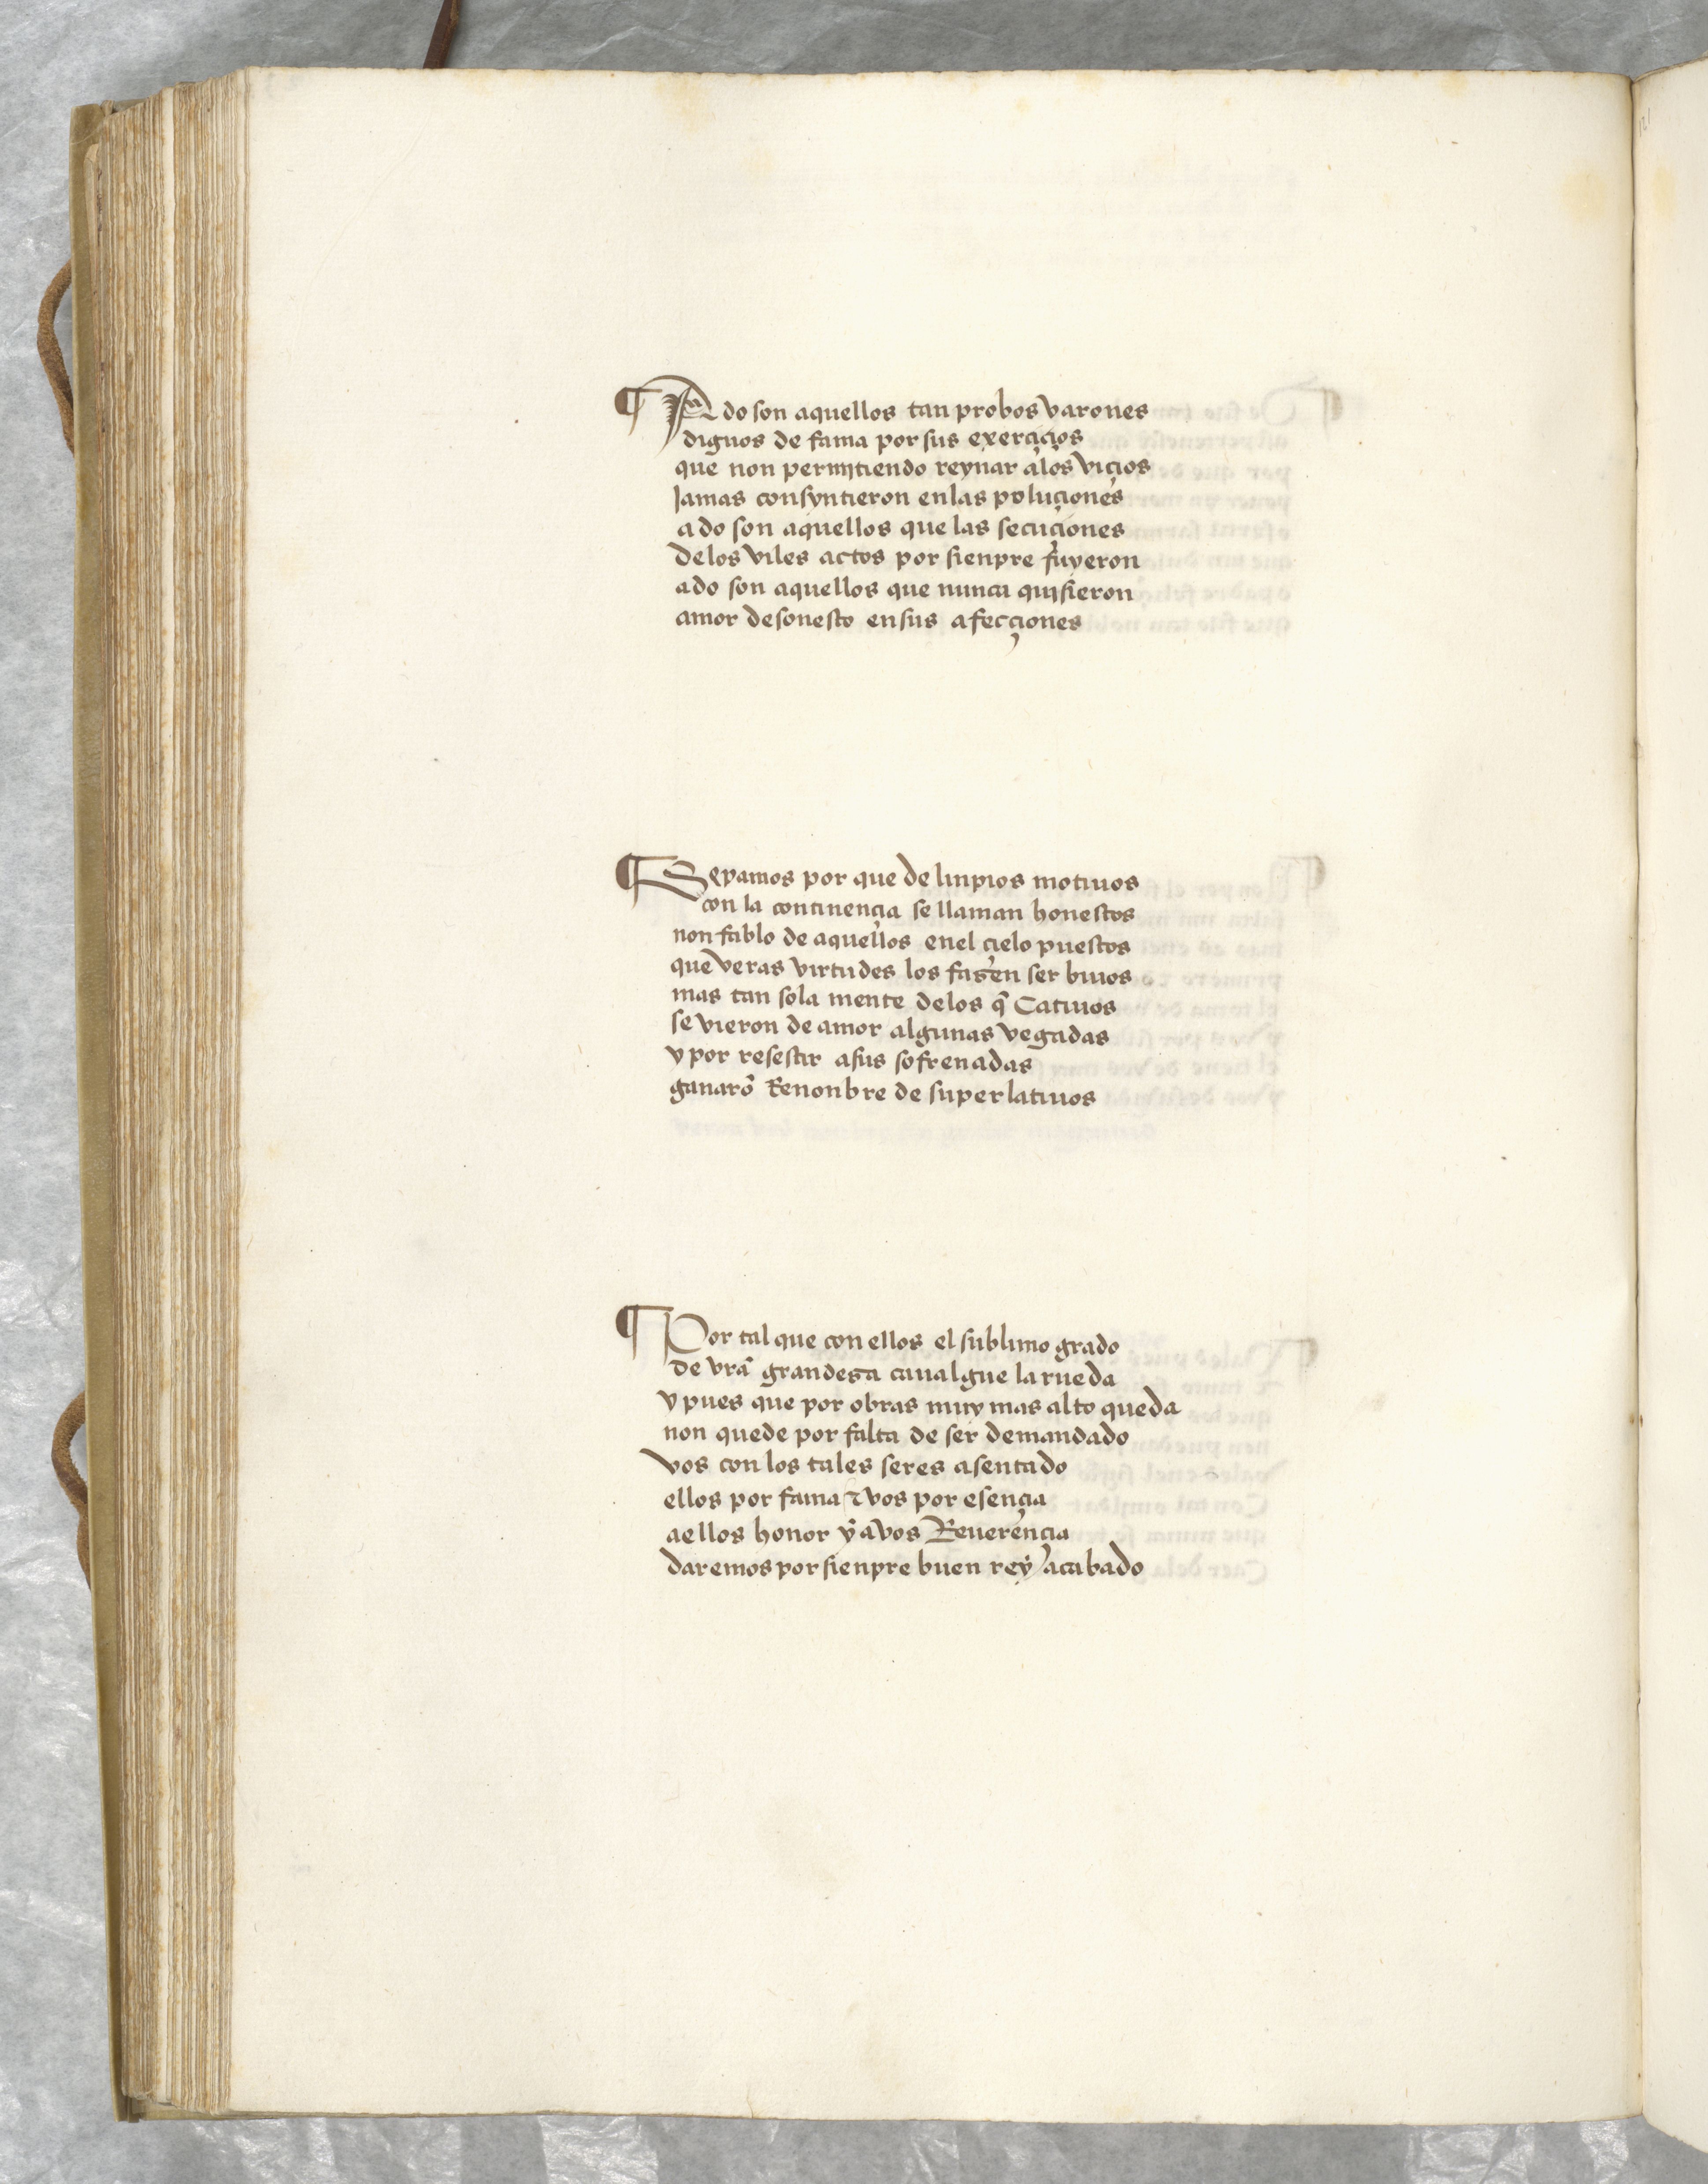 ¶ Ado son aquellos tan probos varones
dignos de fama por sus exerciçios
que non permjtiendo reynar alos viçios
Jamas consyntieron enlas poluçiones
ado son aquellos que las secuçiones
delos viles actos por sienpre fuyeron
ado son aquellos que nunca quisieron
amor desonesto ensus afecçiones
¶ Sepamos por que de linpios motiuos
con la continençia se llaman honestos
non fablo de aquellos enel çielo puestos
que veras virtudes los fazen ser biuos
mas tan sola mente delos q̃ Catiuos
se vieron de amor algunas vegadas
y por resestir asus sofrenadas
ganarõ Renonbre de superlatiuos
¶ Por tal que con ellos el sublimo grado
de vrã grandeza caualgue la rueda
y pues que por obras muy mas alto queda
non quede por falta de ser demandado
vos con los tales seres asentado
ellos por fama ⁊ vos por esençia
aellos honor ẏ avos Reuerençia
daremos por sienpre buen reẏ acabado